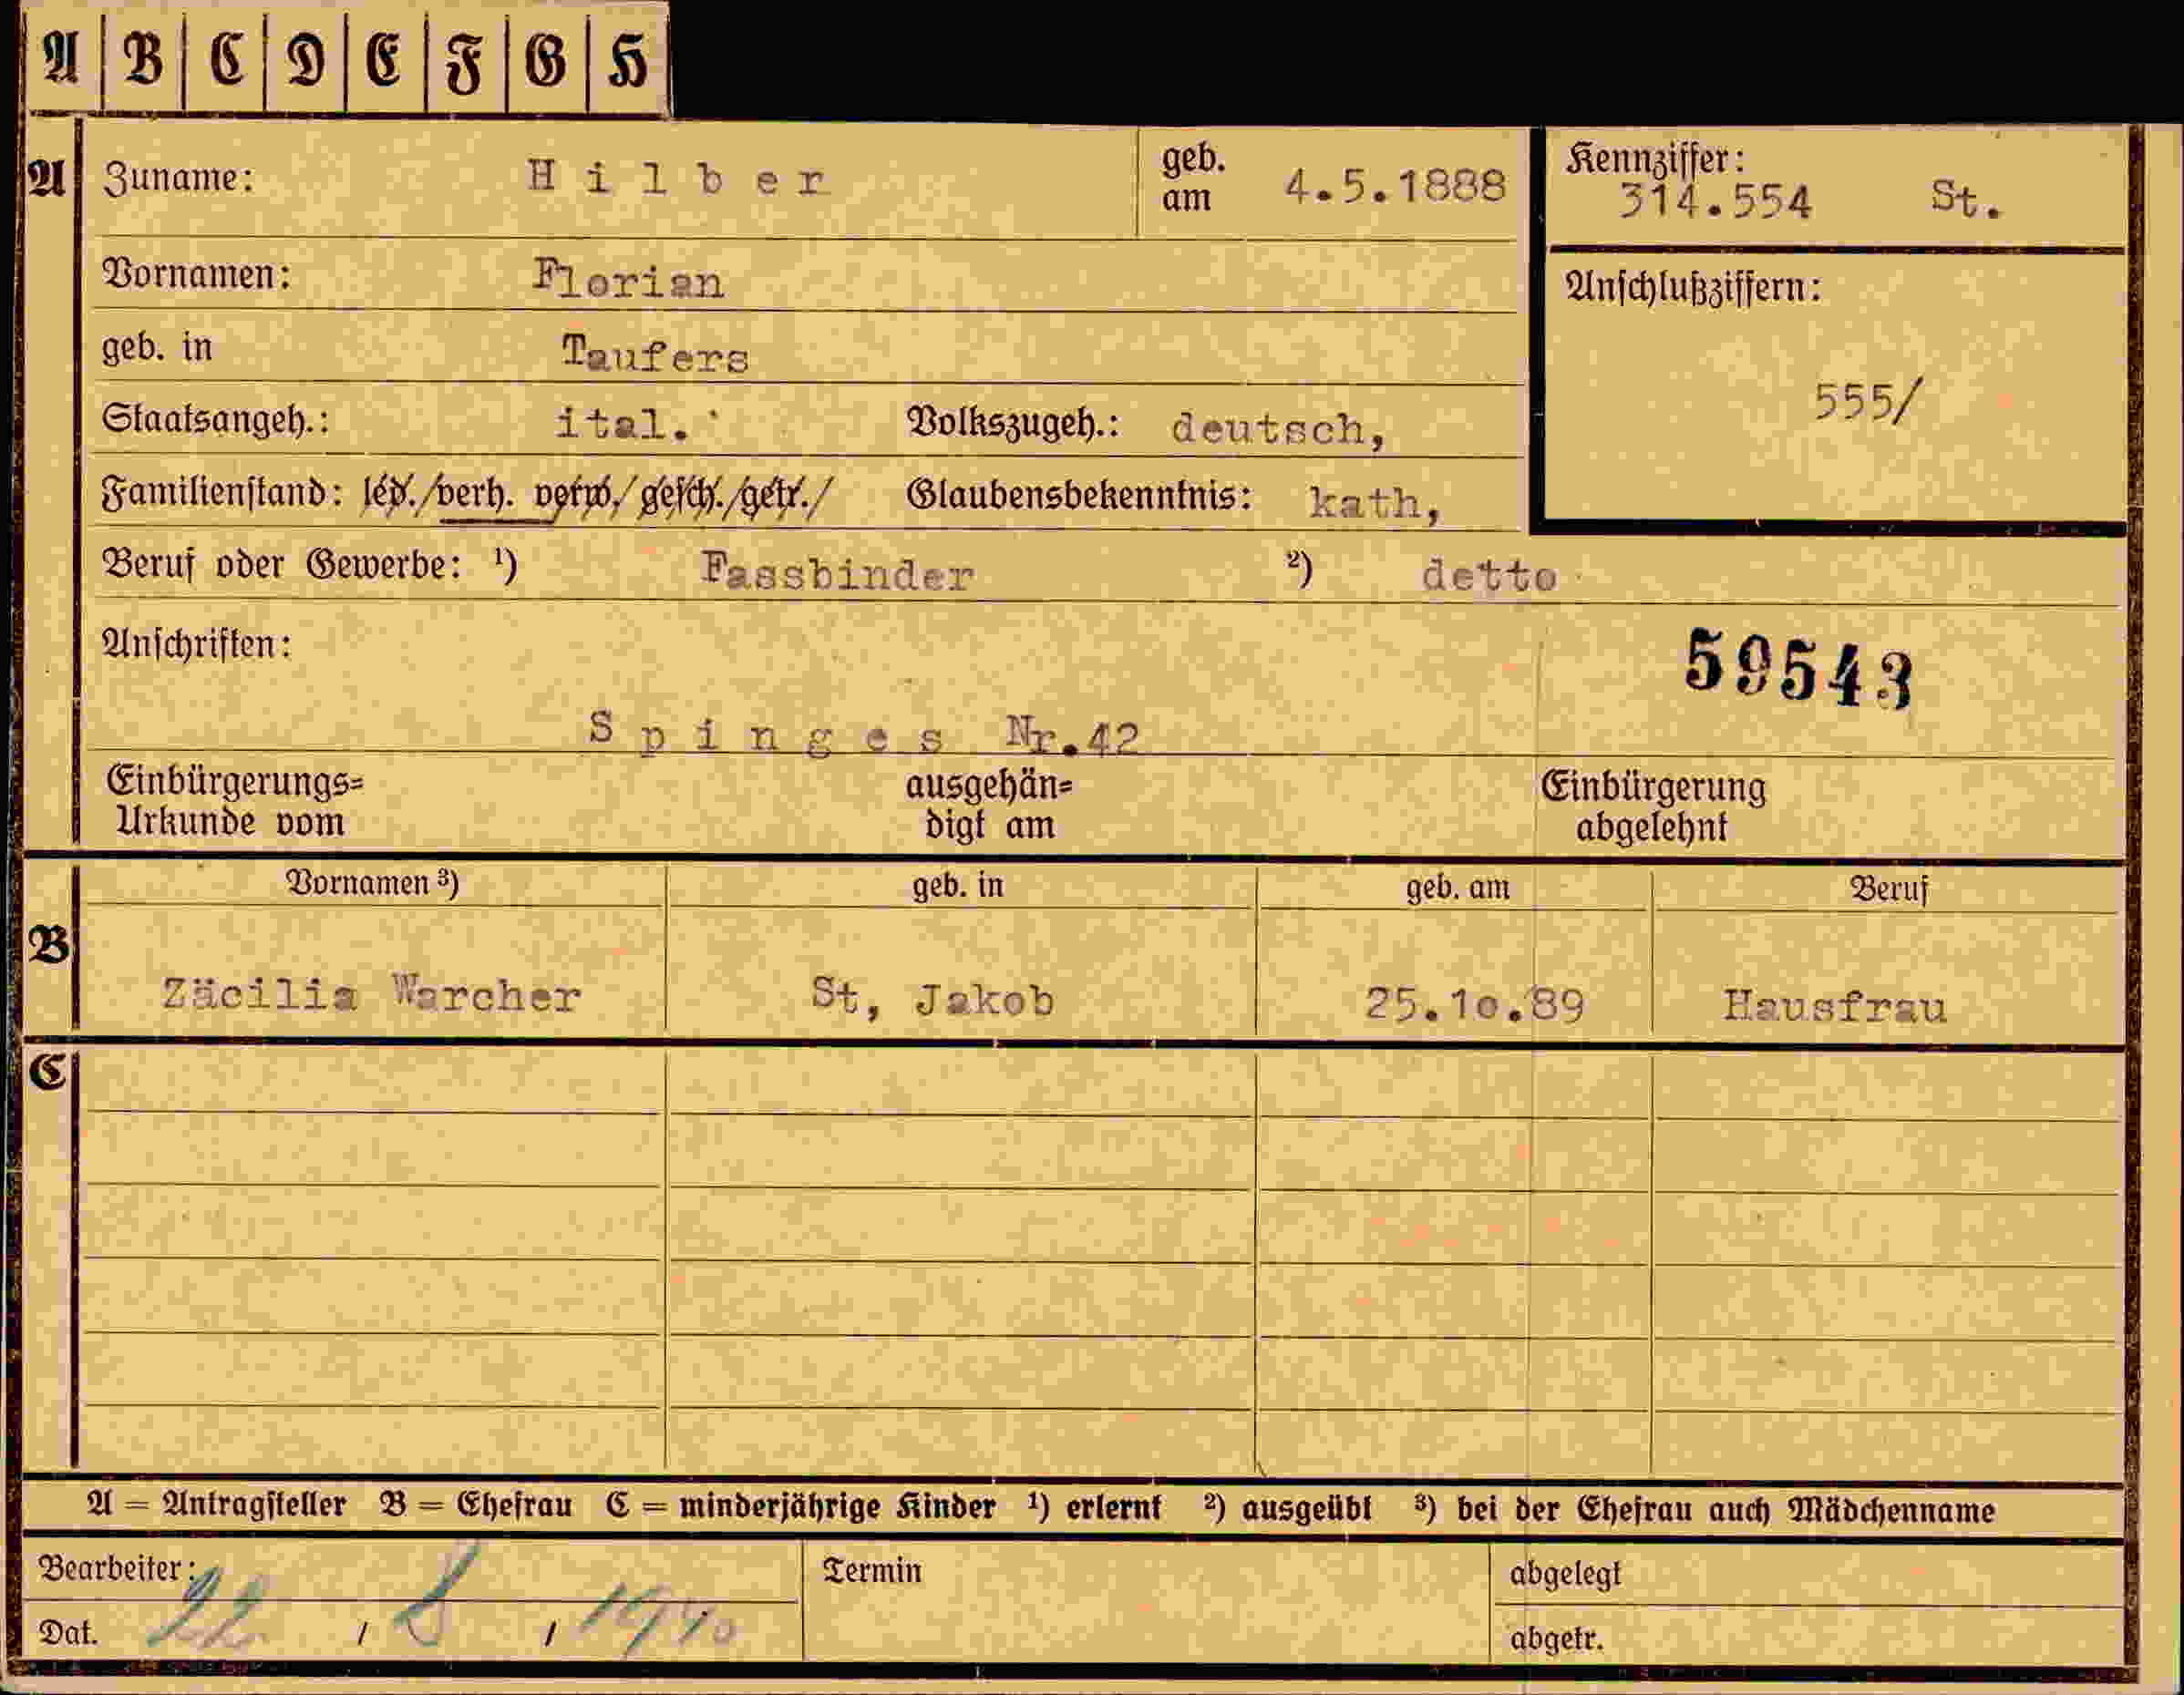 A B C D E F G H
A Zuname: Hilber geb. am 4.5.1888 Kennziffer: 314.554 St.
Vornamen: Florian Anschlußziffern:
geb. in Taufers 555/
Staatsangeh.: ital. Volkszugeh.: deutsch,
Familienstand: led./verh. verw./gesch./getr./ Glaubensbekenntnis: kath,
Beruf oder Gewerbe: ¹) Fassbinder ²) detto
Anschriften: 59543
Spinges Nr.42
Einbürgerungs= ausgehän= Einbürgerung
Urkunde vom digt am abgelehnt
Vornamen ³) geb. in geb. am Beruf
B Zäcilia Warcher St, Jakob 25.10.89 Hausfrau
C
A = Antragsteller B = Ehefrau C = minderjährige Kinder ¹) erlernt ²) ausgeübt ³) bei der Ehefrau auch Mädchenname
Bearbeiter: Termin abgelegt
Dat. 22 / 8 / 1940 abgetr.